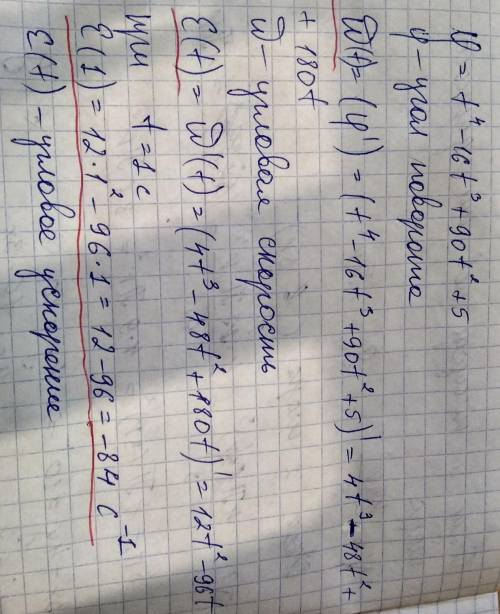 φ = t⁴ - 16t³ + 90t² + 5
φ - угол поворота
W(t) = (φ') = (t⁴ - 16t³ + 90t² + 5)' = 4t³ - 48t² +
+ 180t
W - угловая скорость
E(t) = W'(t) = (4t³ - 48t² + 180t)' = 12t² - 96t
при t = 1 с
E(1) = 12·1² - 96·1 = 12 - 96 = -84 с⁻¹
E(t) - угловое ускорение